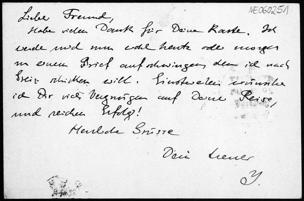 NE060251
Lieber Freund,
Habe vielen Dank für Deine Karte. Ich
werde mich nun wohl heute oder morgen
zu einem Brief aufschwingen den ich nach
schicken will. Einstweilen wünsche
ich Dir viel Vergnügen auf Deine Reise
und reichen Erfolg!
Herzliche Grüsse
Dein treuer